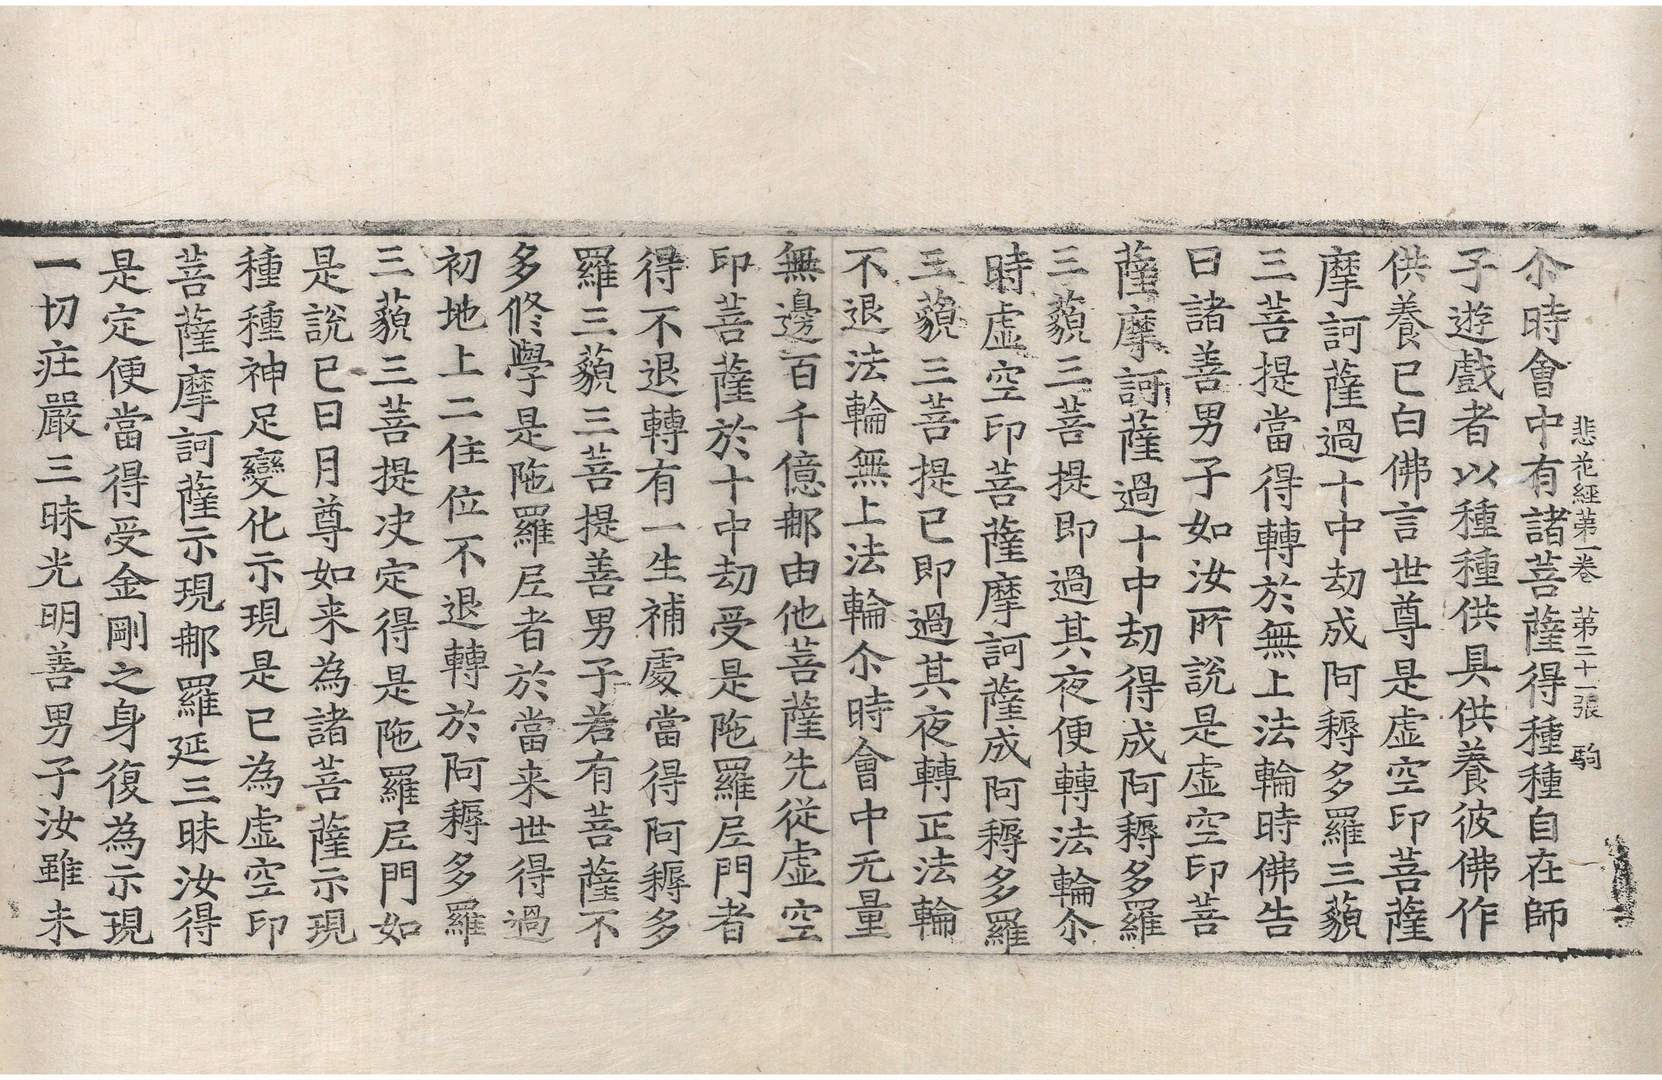 悲花經第一卷　第二十一張　駒
尒時會中有諸菩薩得種種自在師
子遊戲者以種種供具供養彼佛作
供養已白佛言世尊是虛空印菩薩
摩訶薩過十中劫成阿耨多羅三藐
三菩提當得轉於無上法輪時佛告
曰諸善男子如汝所說是虛空印菩
薩摩訶薩過十中劫得成阿耨多羅
三藐三菩提即過其夜便轉法輪尒
時虛空印菩薩摩訶薩成阿耨多羅
三藐三菩提已即過其夜轉正法輪
不退法輪無上法輪尒時會中无量
無邊百千億那由他菩薩先從虛空
印菩薩於十中劫受是陁羅尼門者
得不退轉有一生補處當得阿耨多
羅三藐三菩提善男子若有菩薩不
多修學是陁羅尼者於當来世得過
初地上二住位不退轉於阿耨多羅
三藐三菩提决定得是陁羅尼門如
是說已日月尊如来為諸菩薩示現
種種神足變化示現是已為虛空印
菩薩摩訶薩示現那羅延三昧汝得
是定便當得受金剛之身復為示現
一切莊嚴三昧光明善男子汝雖未